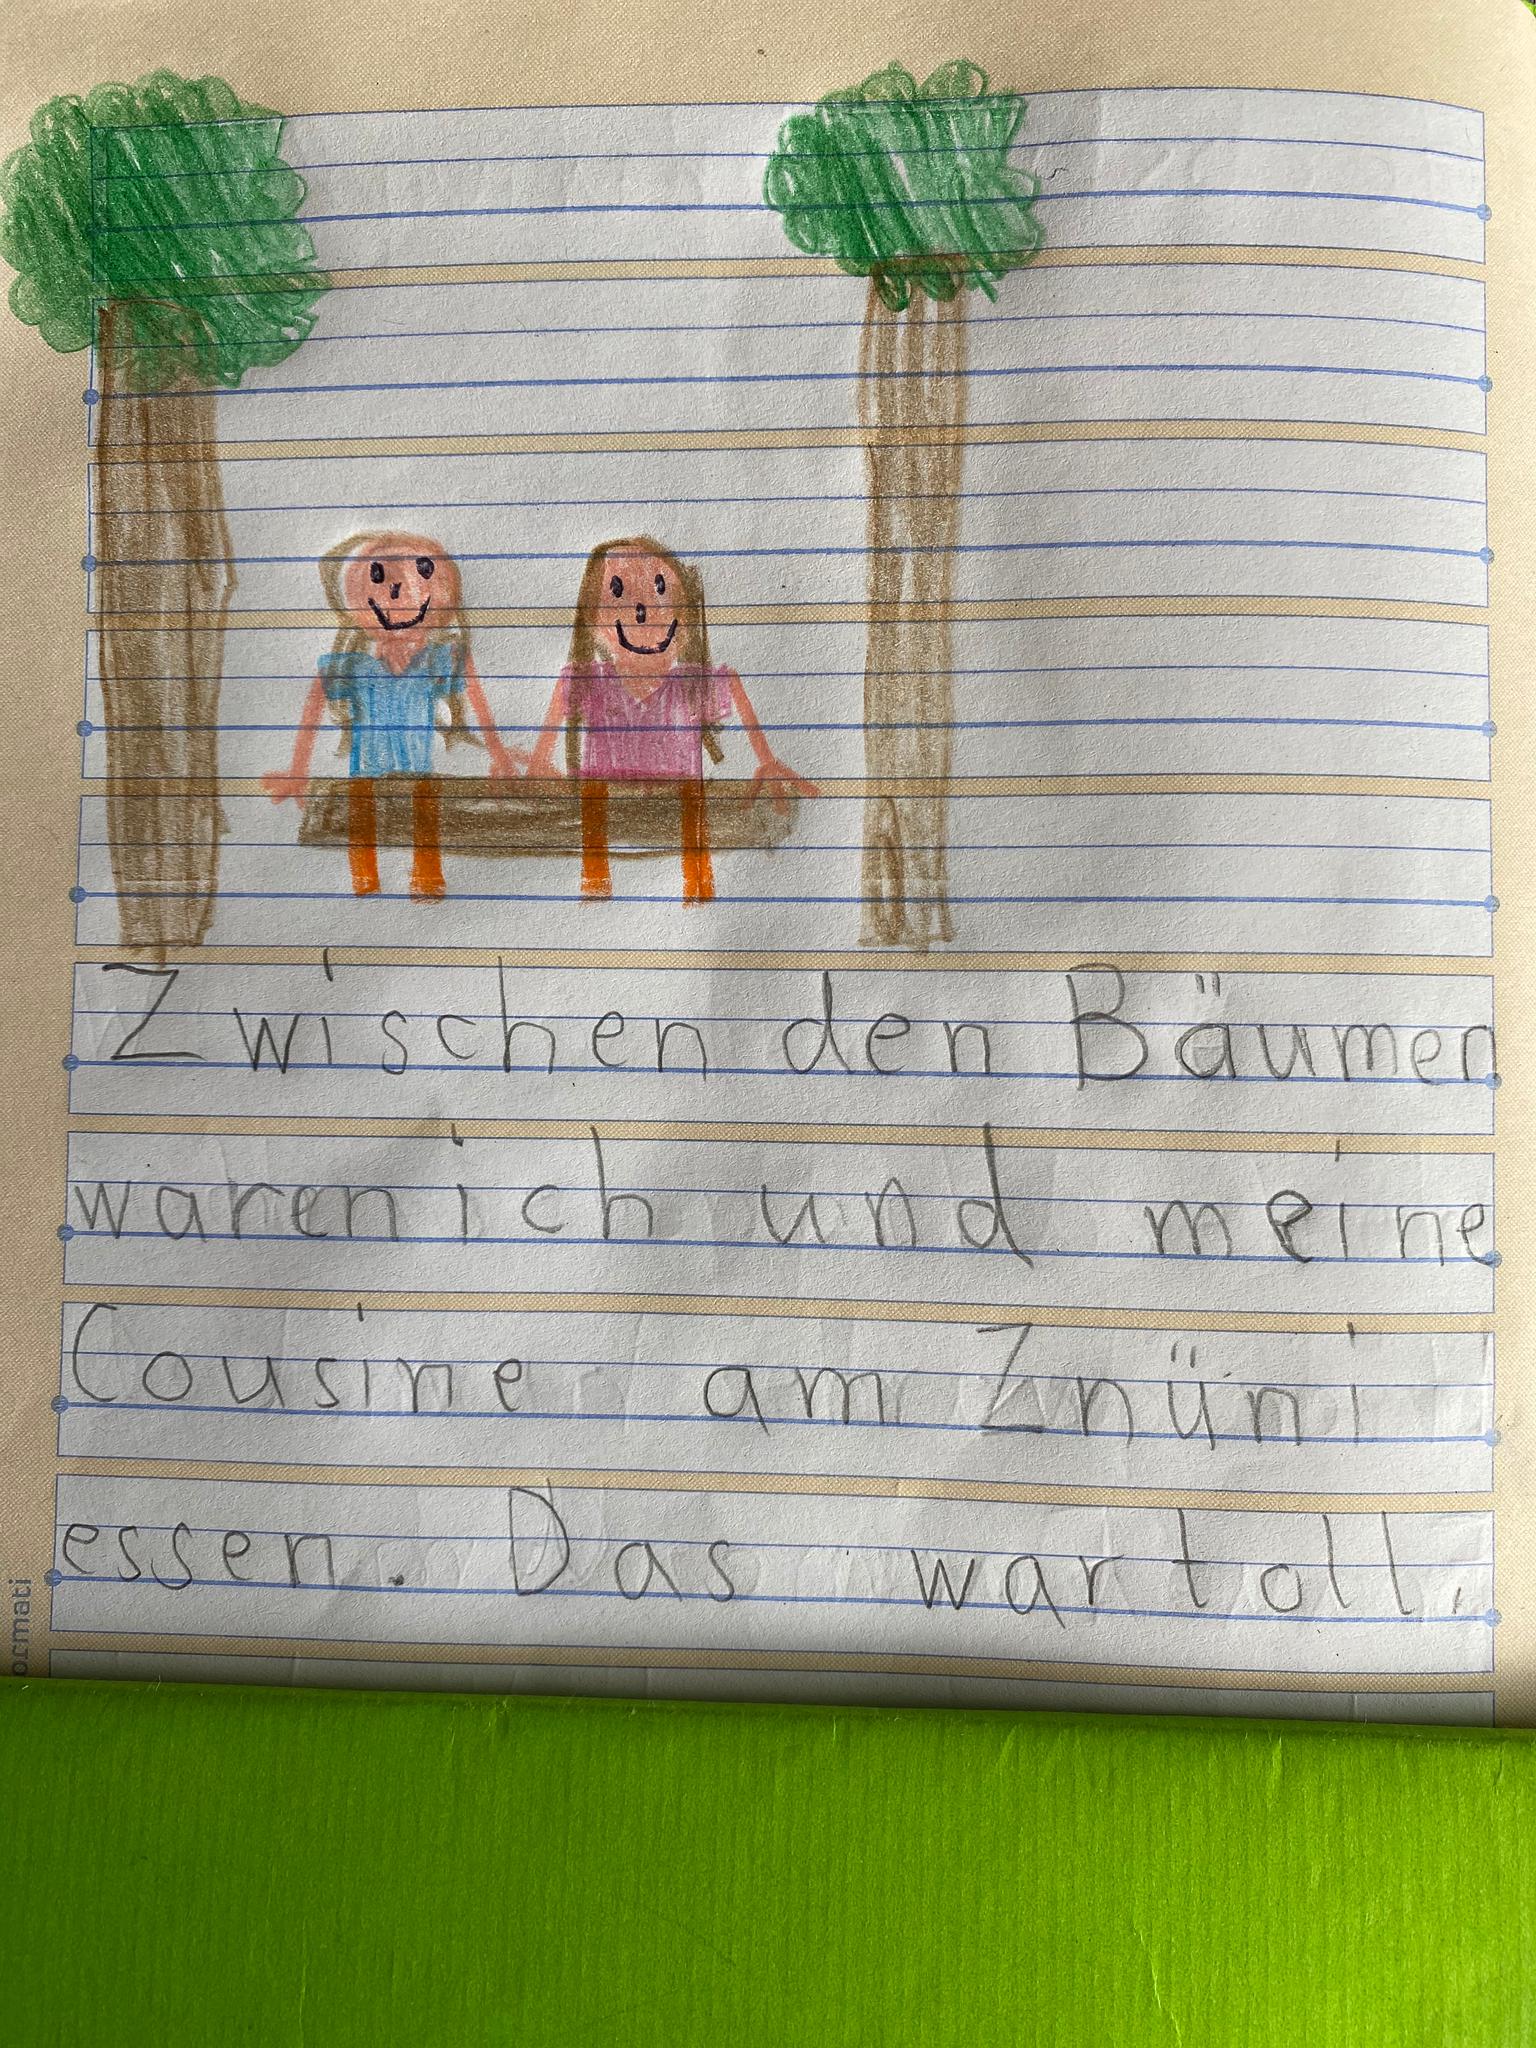 Zwischen den Bäumen
waren ich und meine
Cousine am Znüni
essen. Das war toll.
ormati